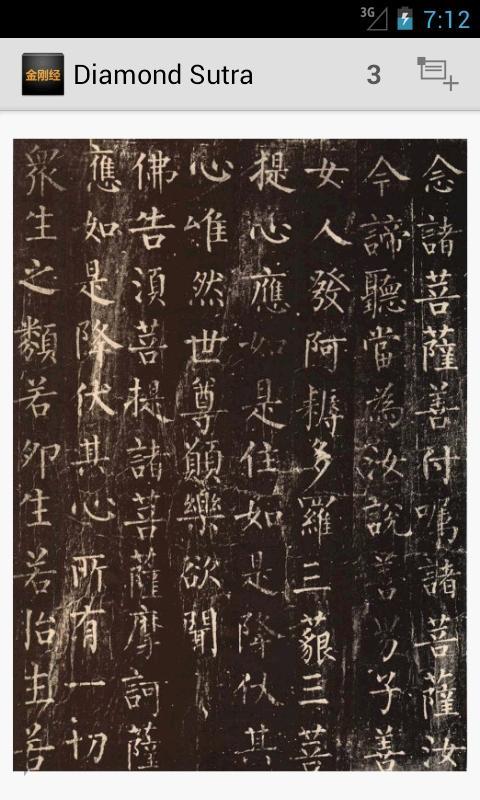 3G
7:12
金刚经
Diamond Sutra
3
念諸菩薩善付囑諸菩薩汝
今諦聽當為汝說善男子善
女人發阿耨多羅三藐三菩
提心應如是住如是降伏其
心唯然世尊願樂欲聞
佛告須菩提諸菩薩摩訶薩
應如是降伏其心所有一切
衆生之類若卵生若胎生若